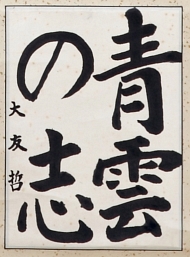 青雲
の志
大友哲